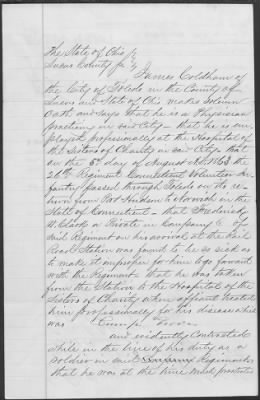 The State of Ohio
Lucas County ss
James Coldham of
the City of Toledo in the County of
Lucas and State of Ohio makes solemn
Oath and says that he is a Physician
practicing in said City — that he is em
ployed professionally at the Hospital of
the Sisters of Charity in said City — that
on the 5th day of August A.D. 1863 the
26th Regiment Connecticut Volunteer In
fantry passed through Toledo on its re
turn from Port Hudson to Norwich in the
State of Connecticut — that Frederick
W. Clark a Private in Company of
said Regiment on his arrival at the Rail
Road Station was found to be so sick as
to make it improper for him to go forward
with the Regiment — that he was taken
from the Station to the Hospital of the
Sisters of Charity where affiant treated
him professionally for his disease which
was Camp Fever
and evidently contracted
while in the line of his duty as a
soldier in said Regiment
that he was at the time much prostrated